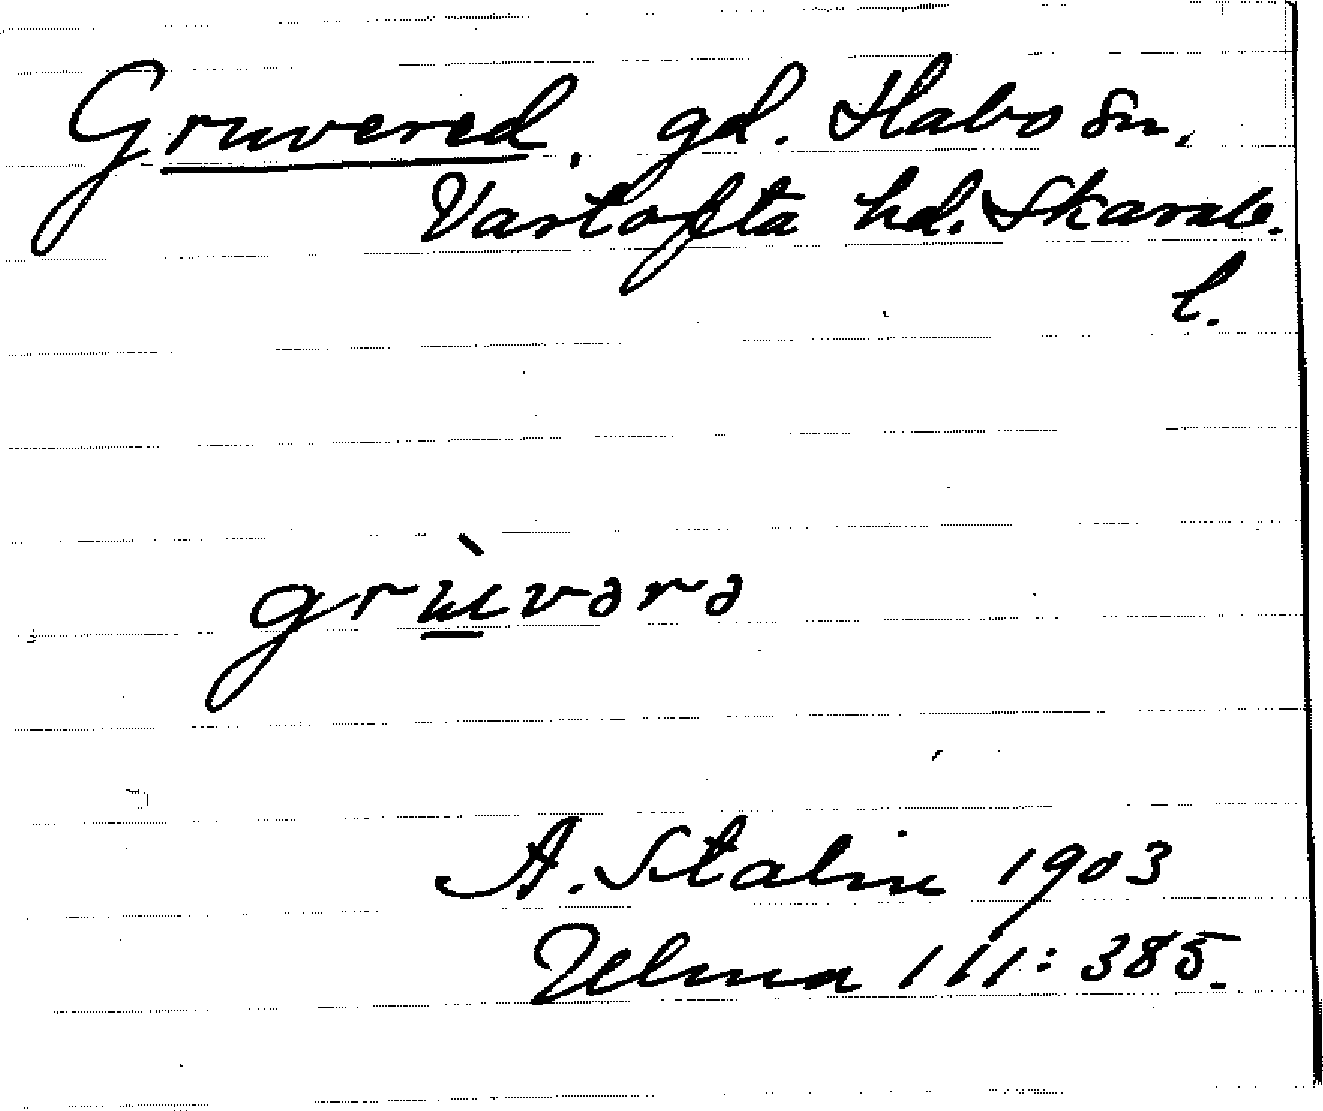 Gruvered, gd. Habo sn.
Vartofta hd. Skarab.
l.
grùvərə
A. Stalin 1903
Ulma 111:385.